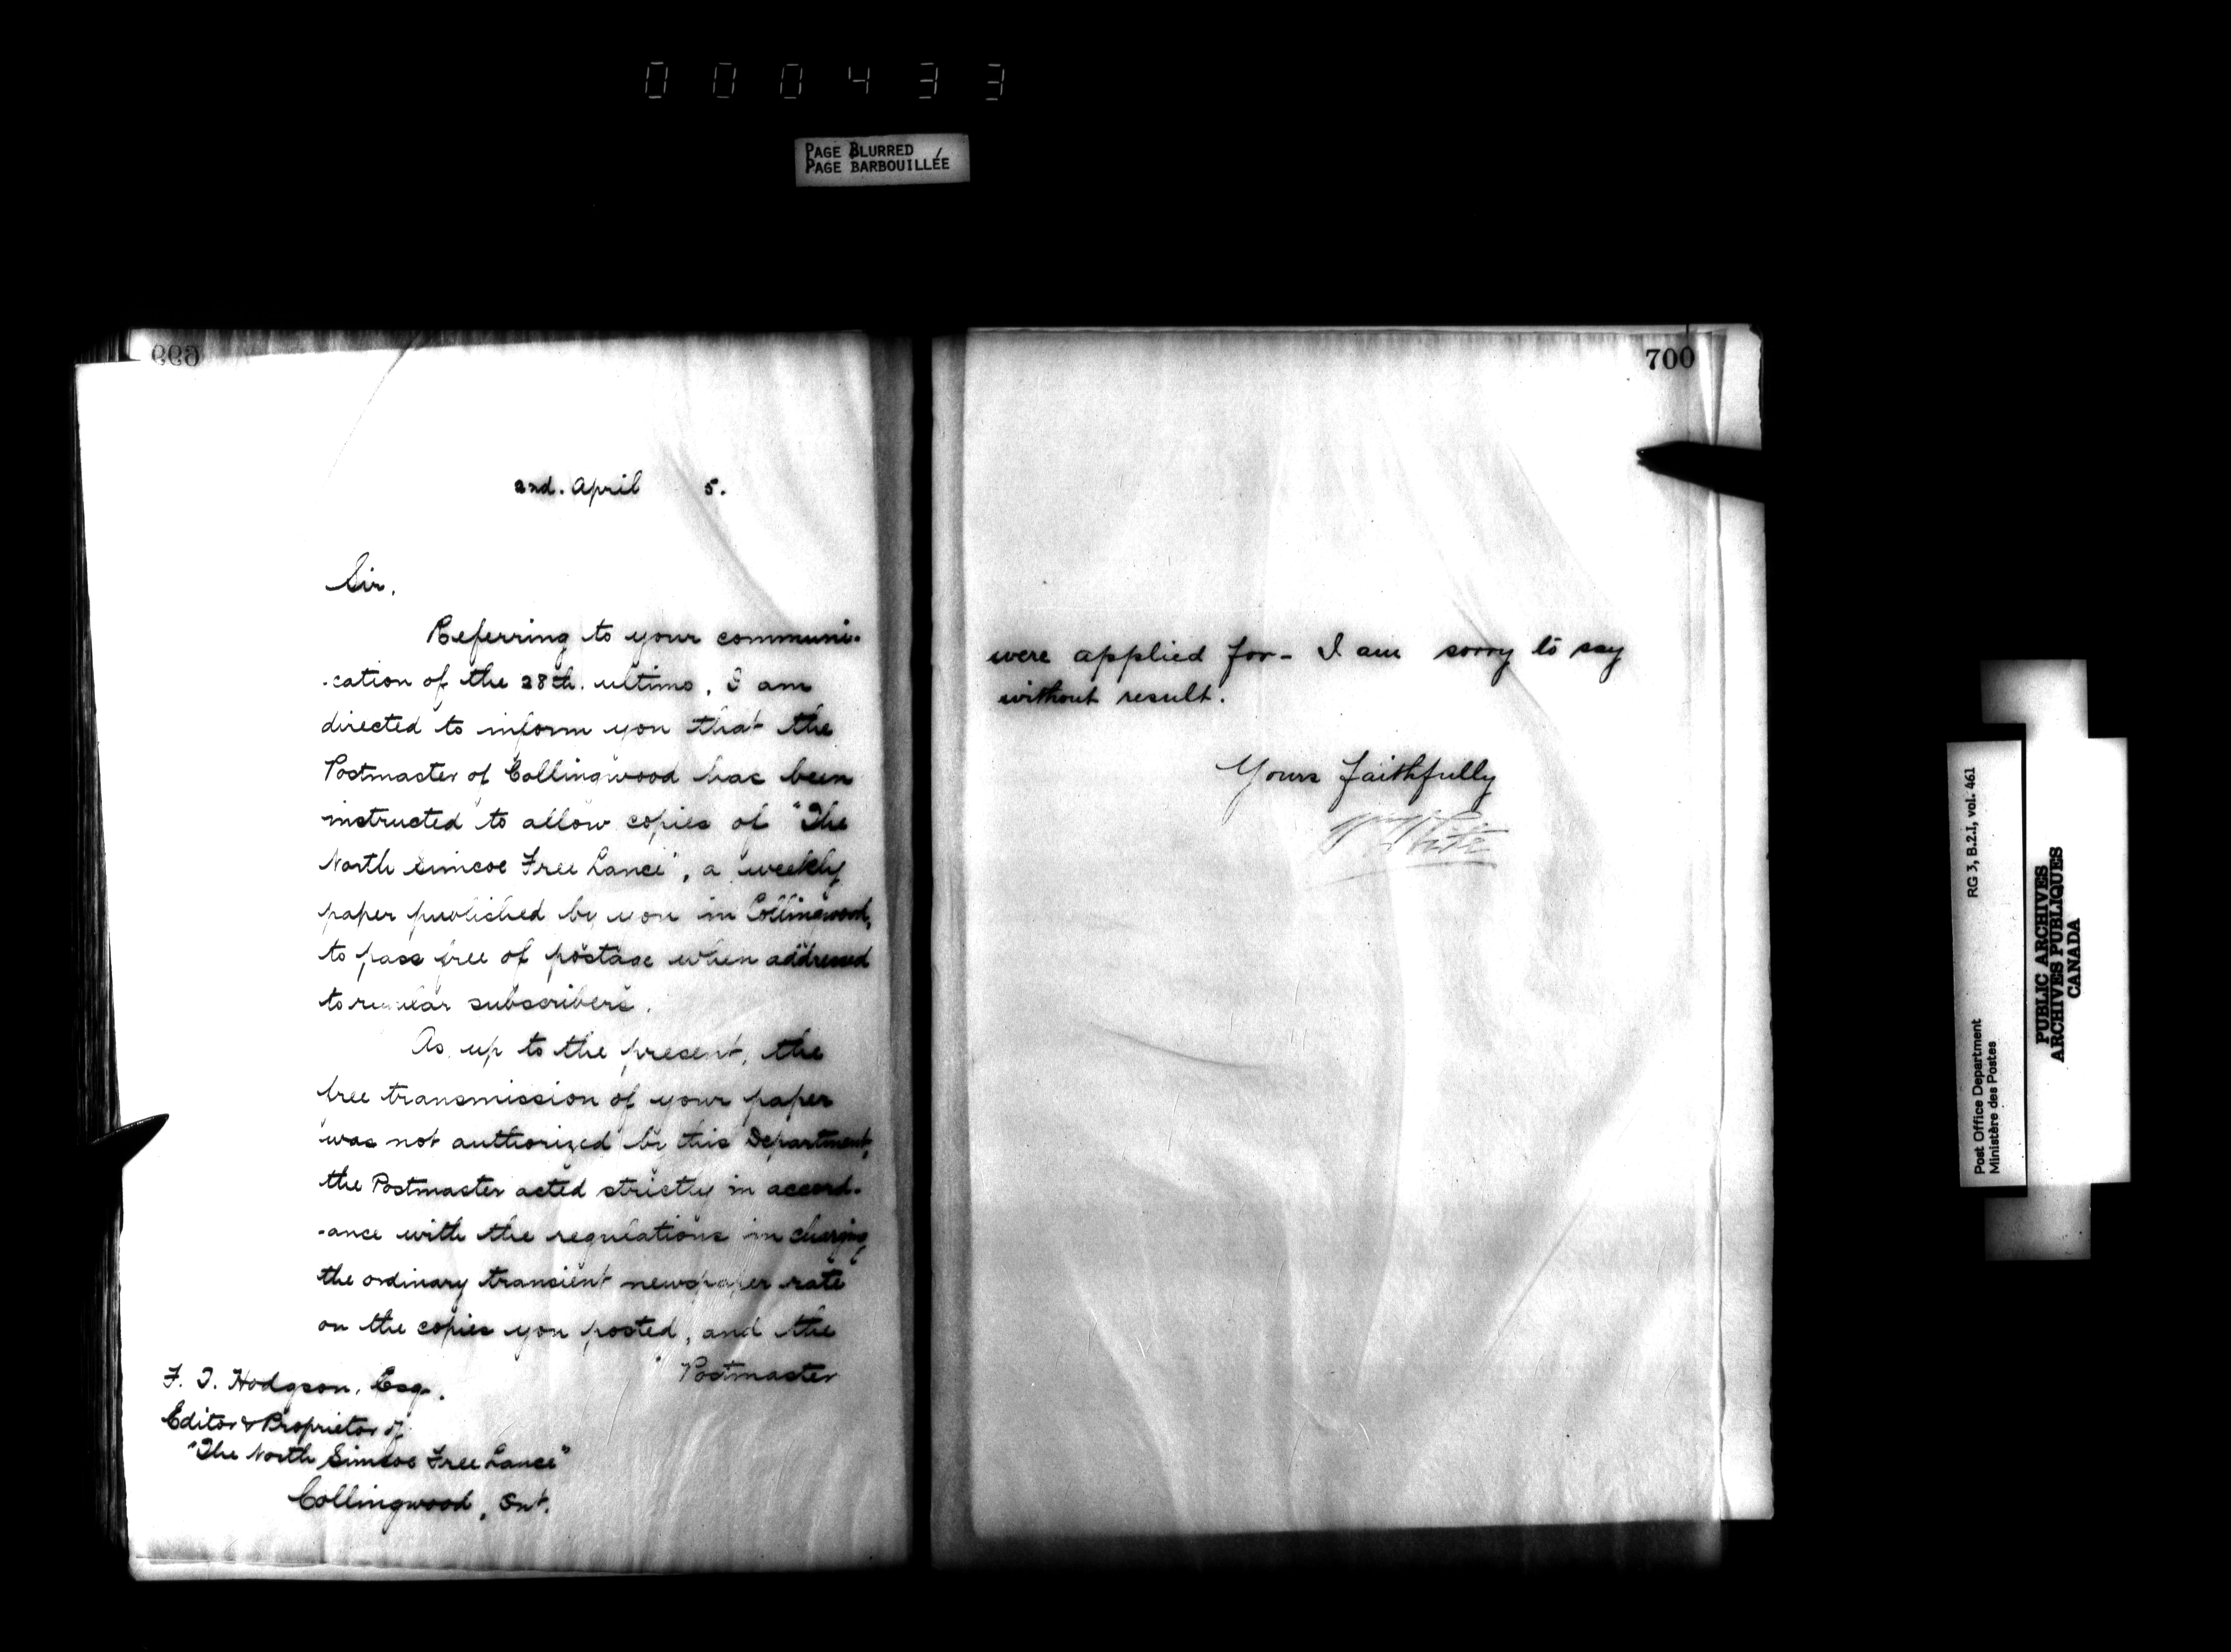 000433
PAGE BLURRED
PAGE BARBOUILLÉE
699
2nd. April 5.
Sir,
Referring to your communi-
-cation of the 28th. ultimo, I am
directed to inform you that the
Postmaster of Collingwood has been
instructed to allow copies of "The
North Simcoe Free Lance", a weekly
paper published by you in Collingwood,
to pass free of postage when addressed
to regular subscribers.
As, up to the present, the
free transmission of your paper
was not authorized by this Department,
the Postmaster acted strictly in accord-
-ance with the regulations in charging
the ordinary transient newspaper rate
on the copies you posted, and the
Postmaster
F. T. Hodgson, Esq.
Editor & Proprietor of
"The North Simcoe Free Lance"
Collingwood, Ont.
700
were applied for - I am sorry to say
without result.
Yours faithfully
Wm White
RG 3, B.2.I, vol. 461
Post Office Department
Ministère des Postes
PUBLIC ARCHIVES
ARCHIVES PUBLIQUES
CANADA